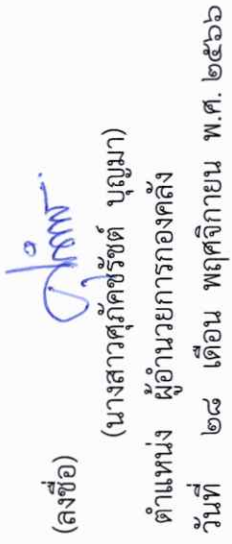 (ลงชื่อ)
(นางสาวศุภัคชรัชต์ บุญมา)
ตำแหน่ง ผู้อำนวยการกองคลัง
วันที่ ๒๘ เดือน พฤศจิกายน พ.ศ. ๒๕๖๖